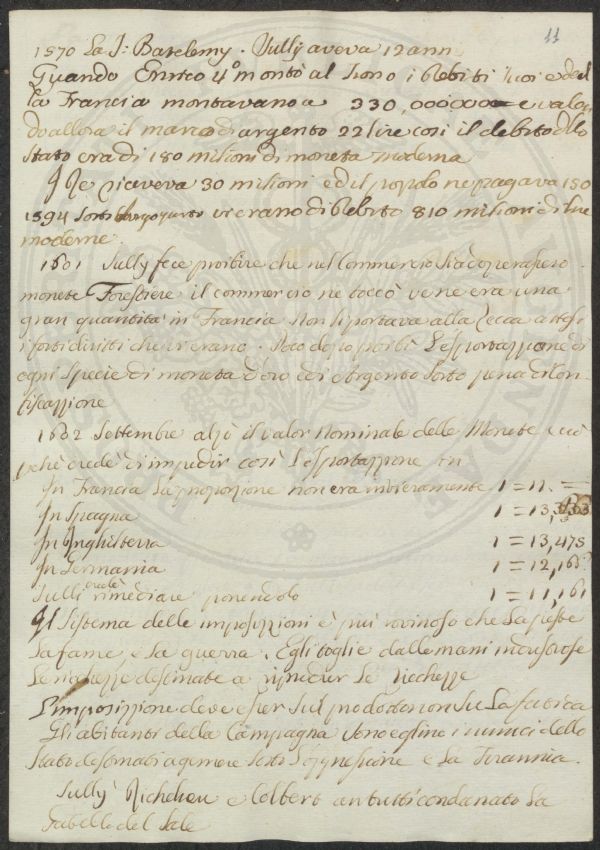 11
1570 La S: Bartelemy. Sully aveva 12 anni
Quando Enrico 4° montò al trono i debiti suoi e del
la Francia montavano a 330,000000 e valen
do allora il marco di argento 22 lire così il debito dello
Stato era di 180 milioni di moneta moderna
Il Re riceveva 30 milioni ed il popolo ne pagava 150
1594 vi erano di debito 810 milioni di lire
moderne.
1601 Sully fece proibire che nel Commercio si adoperassero
monete Forestiere il commercio ne toccò ve ne era una
gran quantità in Francia non si portava alla Zecca attesi
i forti diritti che vi erano. Poco dopo proibì L'esportazzione di
ogni specie di moneta d'oro e di argento sotto pena di Con
fiscazzione
1602 Settembre alzò il valor nominale delle Monete
perché credè d'impedir così L'esportazzione
In Francia La proporzione non era intieramente 1 = 11. =
In Spagna 1 = 13,333
In Inghilterra 1 = 13,475
In Germania 1 = 12,163
Sulli credè rimediare ponendolo 1 = 11,161
Il Sistema delle imposizioni è più rovinoso che La peste
La fame, e La guerra. Egli toglie dalle mani industriose
Le ricchezze destinate a riprodur Le Ricchezze
L'imposizzione deve esser Sul prodotto non Su La fatica
Gli abitanti della Campagna sono eglino i nemici dello
Stato destinati a gemere sotto L'oppressione e La Tirannia.
Sully Richelieu e Colbert an tutti condanato La
Gabella del Sale